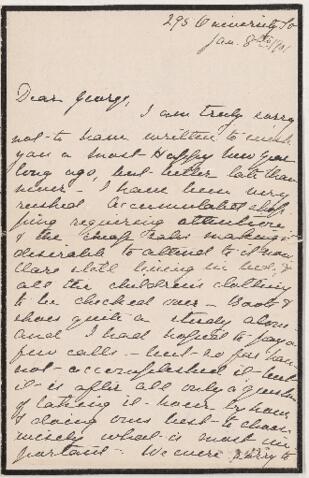 295 University St
Jan. 8th 1901
Dear George,
I am truly sorry
not to have written to wish
you a most Happy New Year
long ago, but better late than
never - I have been very
rushed accumulated shop
ping requiring attention
& the cheap sales making it
desirable to attend to it now
Clare still being in bed, &
all the children's clothing
to be checked over - Boots &
shoes quite a study alone
and I had hoped to pay a
few calls - but so far have
not accomplished it - but
it is after all only a question
of taking it hour by hour
& doing ones best to choose
wisely what is most im
portant - We were sorry to